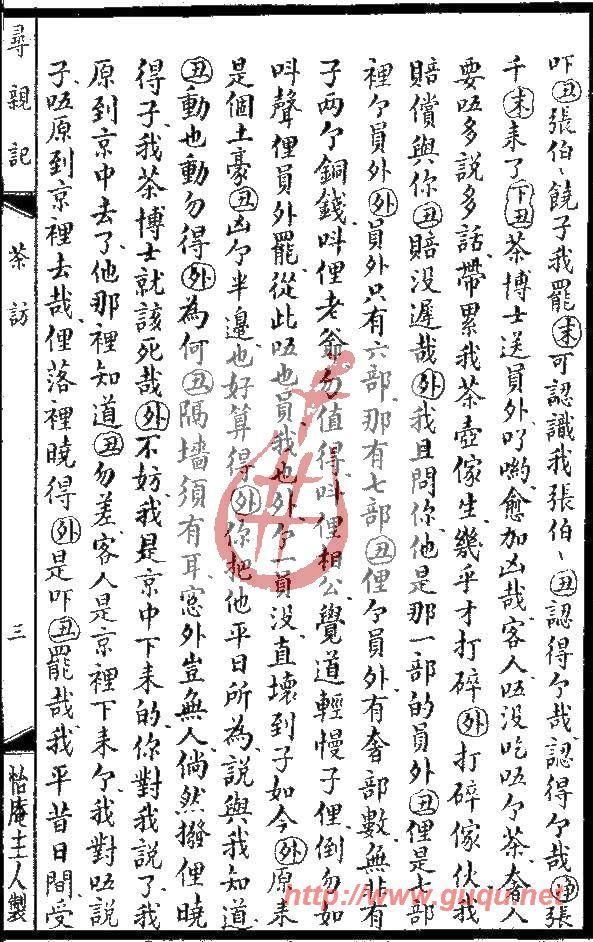 吓丑張伯〻饒子我罷末可認識我張伯〻丑認得ケ哉認得ケ哉淨張
千末来了下丑茶博士送員外吖喲愈加凶哉客人唔没吃唔ケ茶奢人
要唔多説多話帶累我茶壺傢生幾乎才打碎外打碎傢伙我
賠償與你丑賠没遲哉外我且問你他是那一部的員外丑俚是七部
裡ケ員外外員外只有六部那有七部丑俚ケ員外有奢部數無非有
子两ケ銅錢呌俚老爺勿值得呌俚相公覺道輕慢子俚倒勿如
呌聲俚員外罷從此唔也員我也外ケ一員没直壞到子如今外原来
是個土豪丑凶ケ半邊也好算得外你把他平日所為説與我知道
丑動也動勿得外為何丑隔墻須有耳窓外豈無人倘然撥俚曉
得子我茶博士就該死哉外不妨我是京中下来的你對我說了我
原到京中去了他那裡知道丑勿差客人是京裡下来ケ我對唔説
子唔原到京裡去哉俚落裡曉得外是吓丑罷哉我平昔日間受
尋親記
茶訪
三
怡庵主人製
http://www.guqu.net